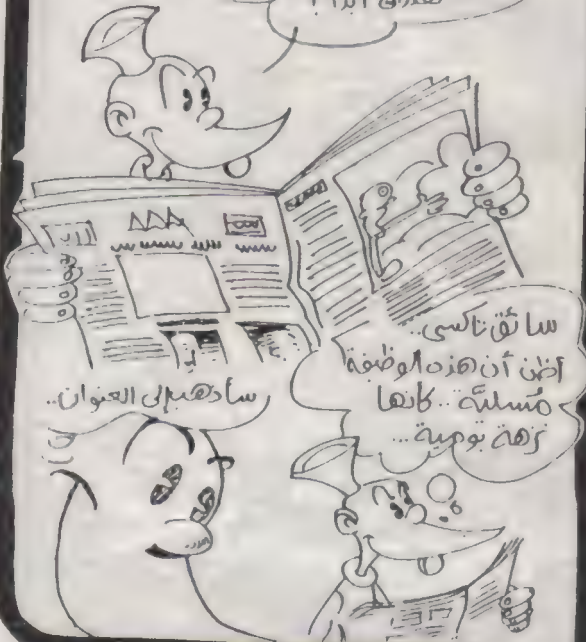 أبدا؟
سائق تاكسى..
أظن أن هذه الوظيفة
مُسليَّة.. كأنها
نزهة يومية...
سأذهب إلى العنوان..